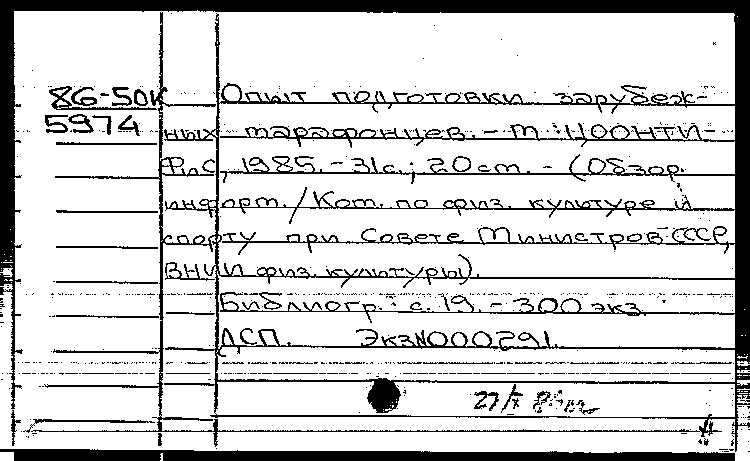 86-50к Опыт подготовки зарубеж-
5974 ных марафонцев. - М.: ЦООНТИ-
ФиС, 1985. - 31с.; 20 см. - (Обзор.
информ. / Ком. по физ. культуре и
спорту при Совете Министров СССР,
ВНИИ физ. культуры).
Библиогр.: с. 19. - 300 экз.
ДСП. Экз№000291.
27/X 86